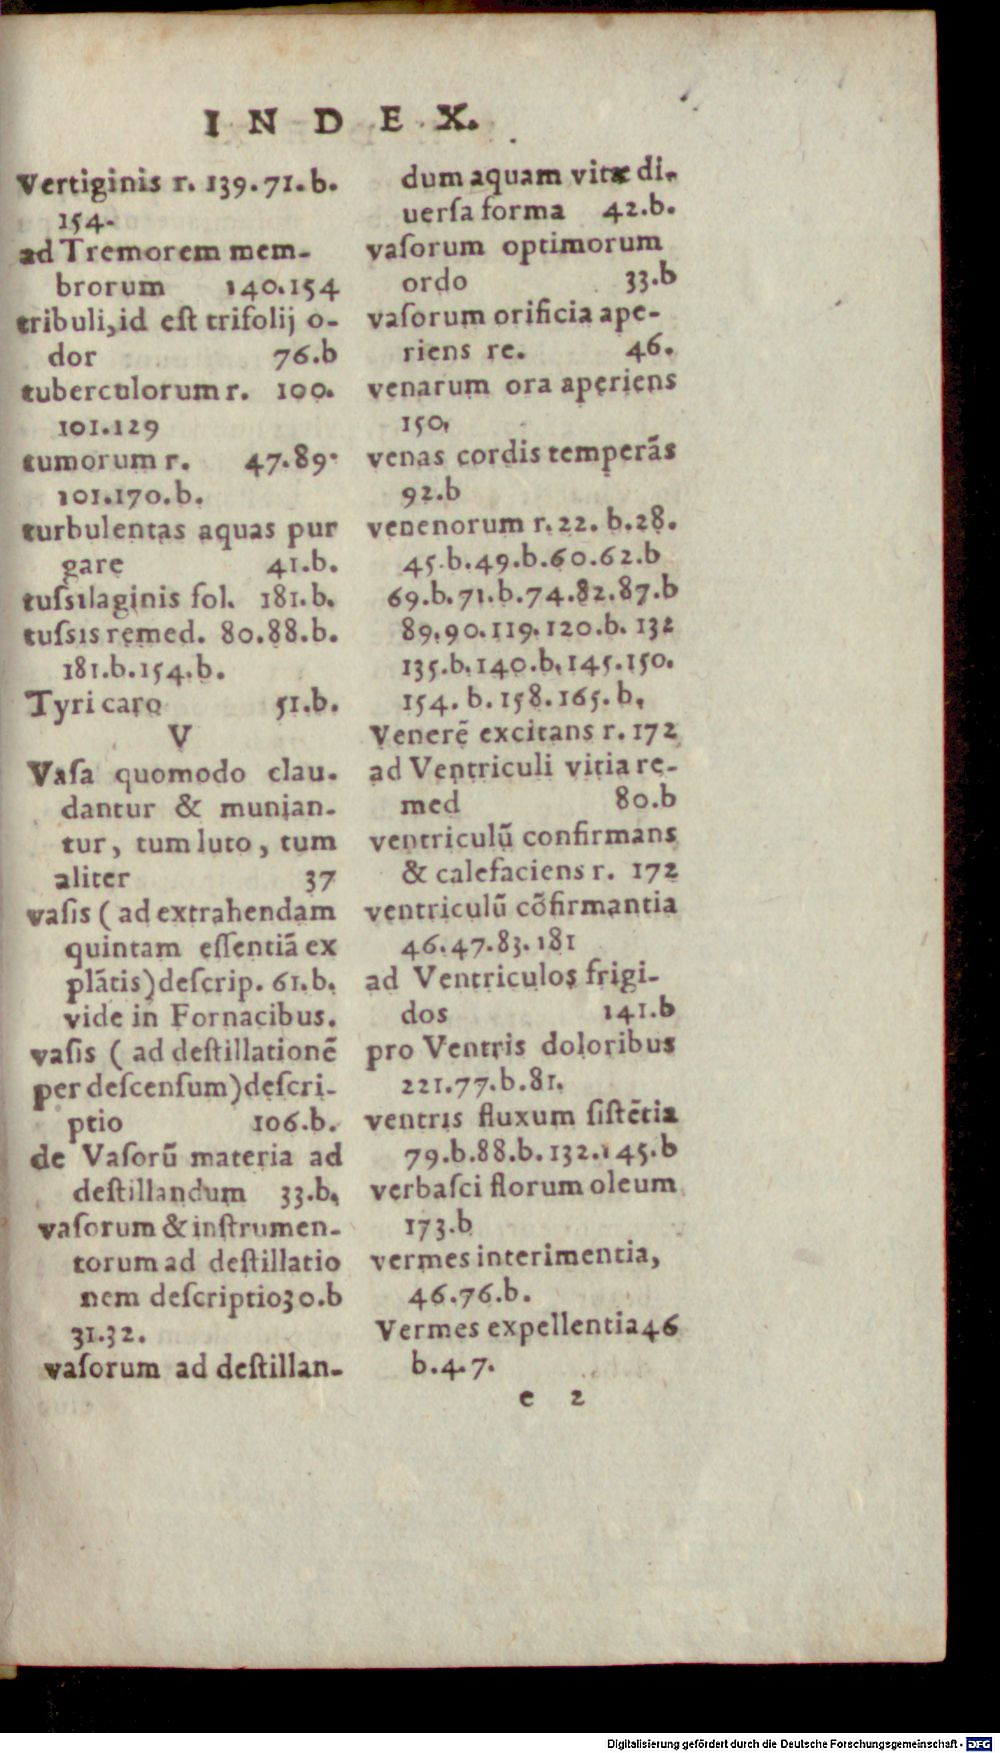 INDEX.
Vertiginis r. 139. 71. b.
154.
ad Tremorem mem-
brorum 140. 154
tribuli, id est trifolij o-
dor 76. b
tuberculorum r. 100.
101. 129
tumorum r. 47. 89.
101. 170. b.
turbulentas aquas pur
gare 41. b.
tussilaginis fol. 181. b.
tussis remed. 80. 88. b.
181. b. 154. b.
Tyri caro 51. b.
V
Vasa quomodo clau-
dantur & munian-
tur, tum luto, tum
aliter 37
vasis (ad extrahendam
quintam essentiã ex
plãtis) descrip. 61. b.
vide in Fornacibus.
vasis (ad destillationẽ
per descensum) descri-
ptio 106. b.
de Vasorũ materia ad
destillandum 33. b.
vasorum & instrumen-
torum ad destillatio
nem descriptio 30. b
31. 32.
vasorum ad destillan-
dum aquam vitæ di-
uersa forma 42. b.
vasorum optimorum
ordo 33. b
vasorum orificia ape-
riens re. 46.
venarum ora aperiens
150.
venas cordis temperãs
92. b
venenorum r. 22. b. 28.
45. b. 49. b. 60. 62. b
69. b. 71. b. 74. 82. 87. b
89. 90. 119. 120. b. 132
135. b. 140. b. 145. 150.
154. b. 158. 165. b.
Venerẽ excitans r. 172
ad Ventriculi vitia re-
med 80. b
ventriculũ confirmans
& calefaciens r. 172
ventriculũ cõfirmantia
46. 47. 83. 181
ad Ventriculos frigi-
dos 141. b
pro Ventris doloribus
221. 77. b. 81.
ventris fluxum sistẽtia
79. b. 88. b. 132. 145. b
verbasci florum oleum
173. b
vermes interimentia,
46. 76. b.
Vermes expellentia 46
b. 4. 7.
e 2
Digitalisierung gefördert durch die Deutsche Forschungsgemeinschaft - DFG